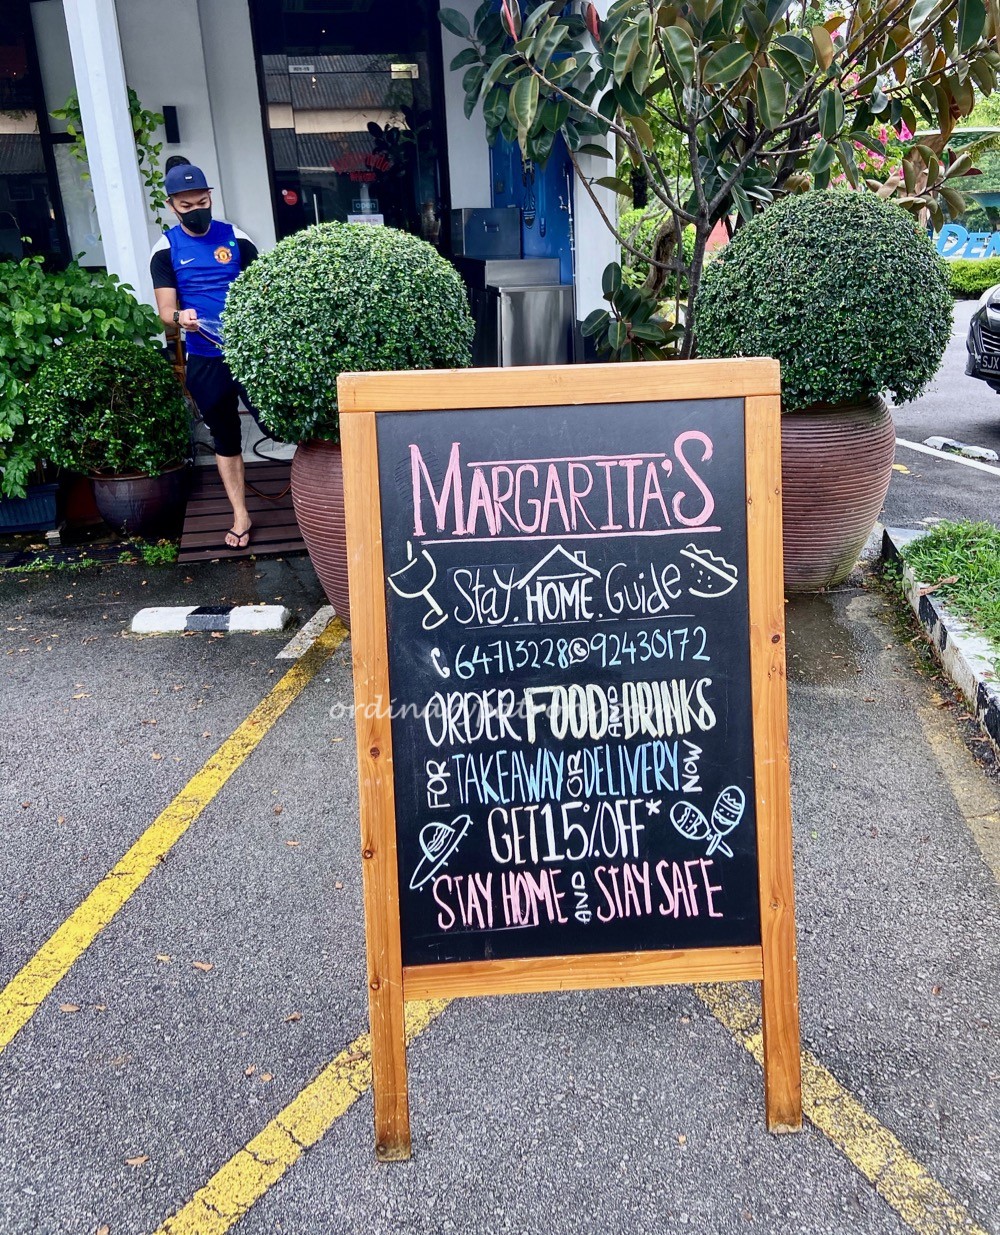 open
DEN
SJX
MARGARITA'S
Stay. HOME. Guide
64713228 92430172
ORDER FOOD AND DRINKS
FOR TAKEAWAY OR DELIVERY NOW
GET 15% OFF*
STAY HOME AND STAY SAFE